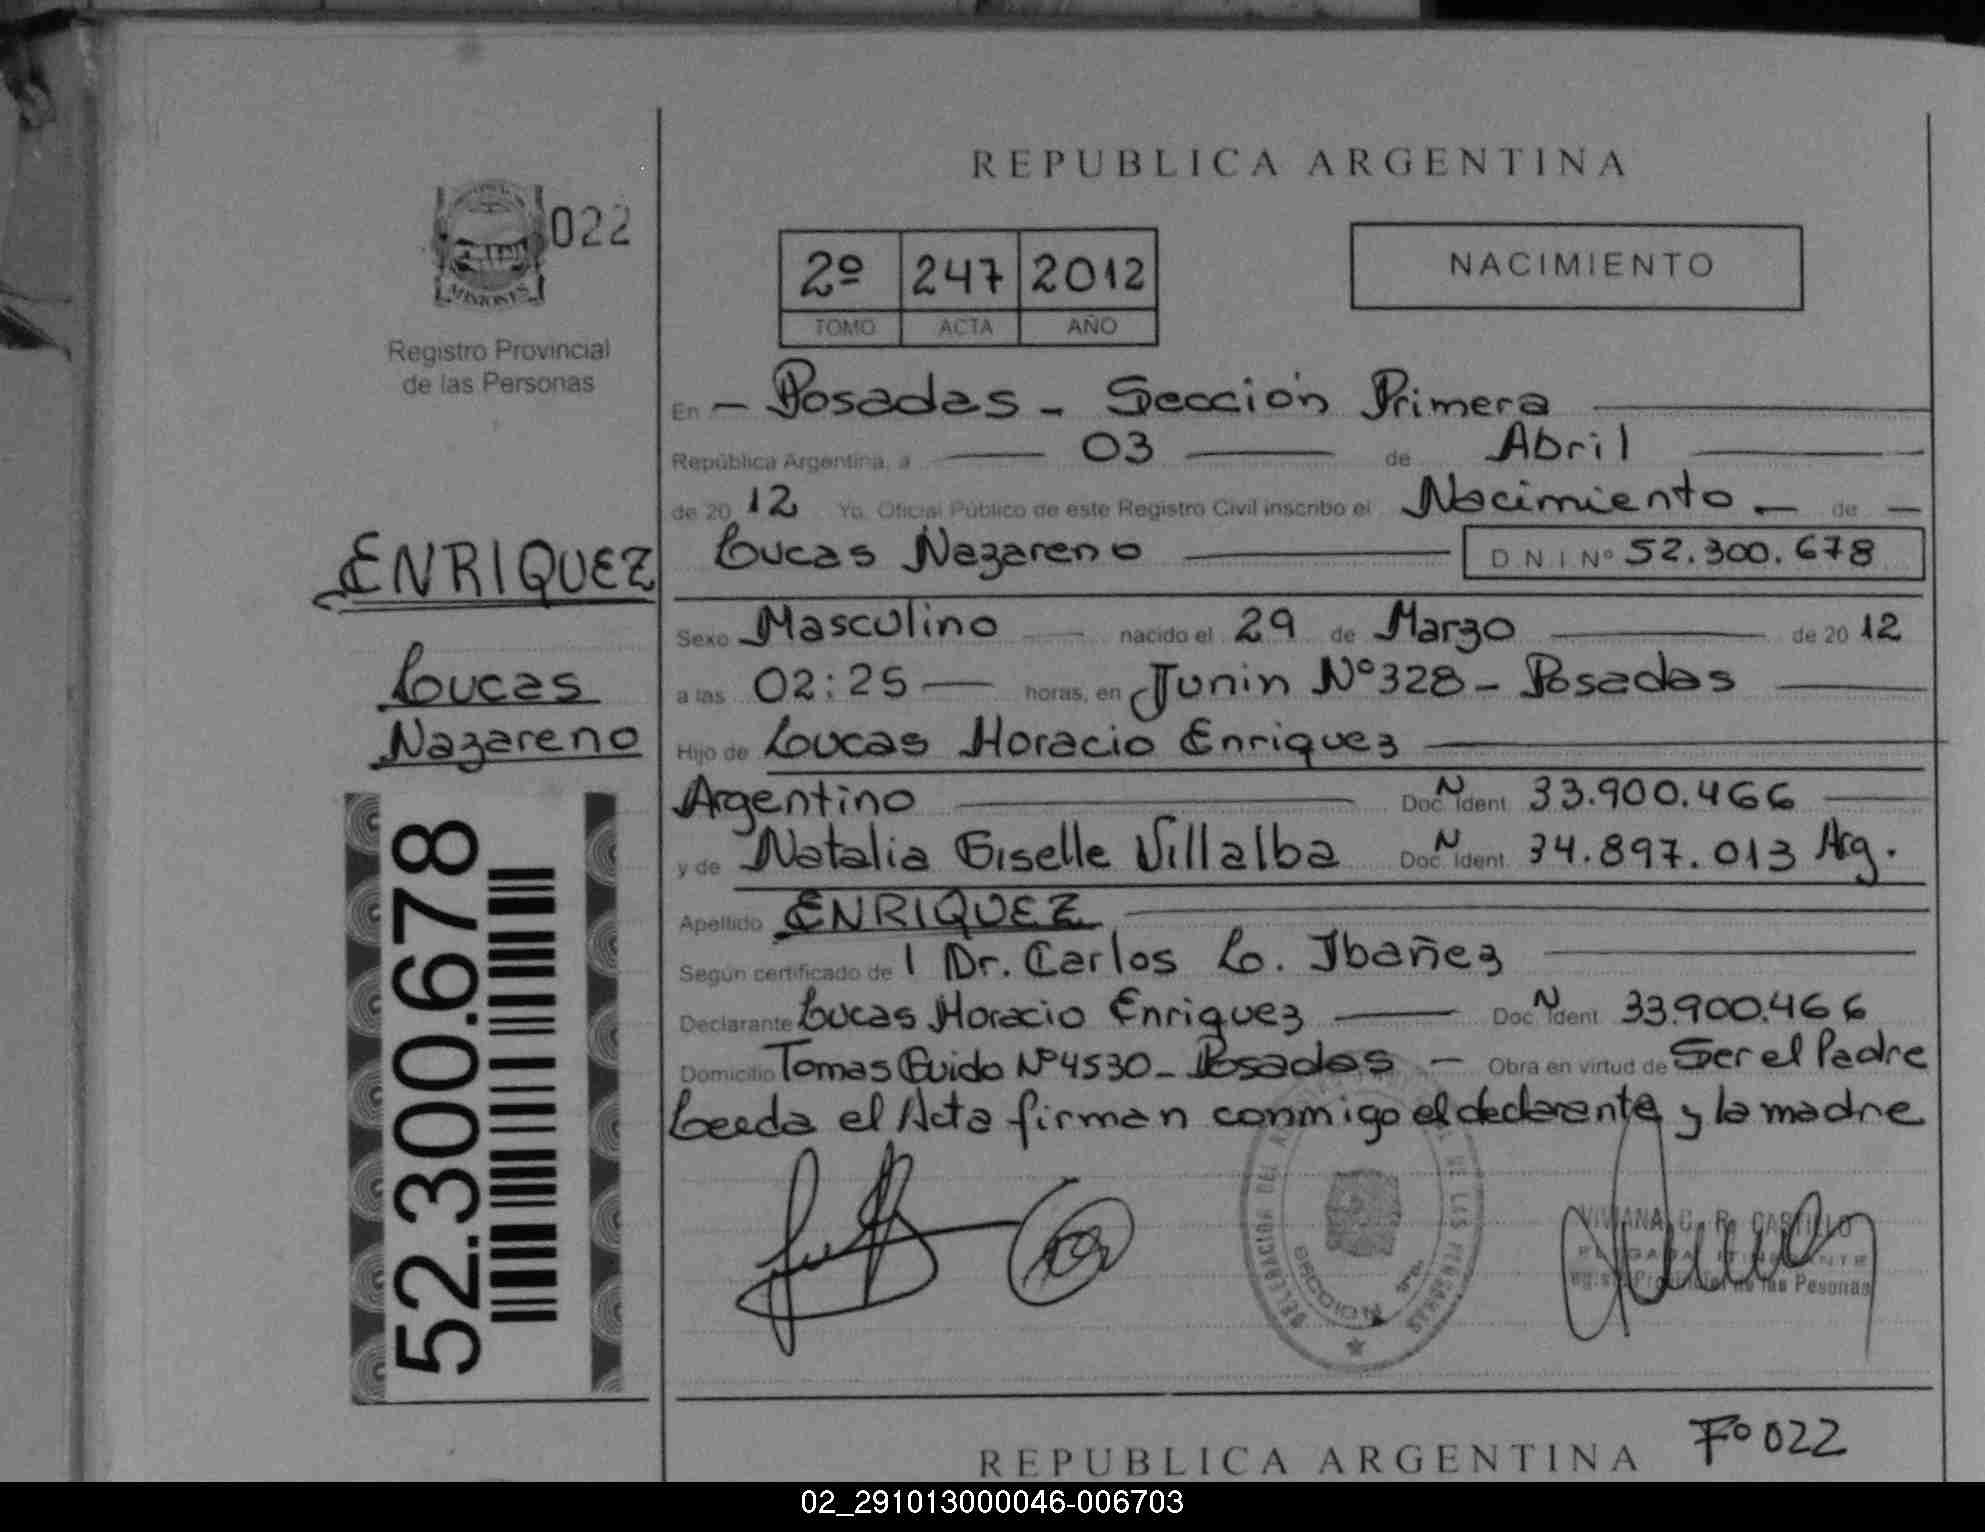 REPUBLICA ARGENTINA
022
MISIONES
Registro Provincial
de las Personas
2º 247 2012
TOMO ACTA AÑO
NACIMIENTO
En - Posadas - Sección Primera
República Argentina, a 03 de Abril
de 20 12 Yo, Oficial Público de este Registro Civil inscribo el Nacimiento - de -
Lucas Nazareno DNI Nº 52.300.678
ENRIQUEZ
Lucas
Nazareno
Sexo Masculino nacido el 29 de Marzo de 20 12
a las 02:25 horas, en Junin Nº 328 - Posadas
Hijo de Lucas Horacio Enriquez
Argentino Doc. N Ident. 33.900.466
y de Natalia Giselle Villalba Doc. N Ident. 34.897.013 Arg.
Apellido ENRIQUEZ
Según certificado de 1 Dr. Carlos L. Ibañez
Declarante Lucas Horacio Enriquez Doc. N Ident. 33.900.466
Domicilio Tomas Guido Nº 4530 - Posadas - Obra en virtud de Ser el Padre
Leeda el Acta firman conmigo el declarante y la madre
52.300.678
DELEGACION DEL DE LAS PERSONAS
SECCION
VIVIANA C. R. CASTILLO
Provincial de las Pesonas
Fº 022
REPUBLICA ARGENTINA
02_291013000046-006703